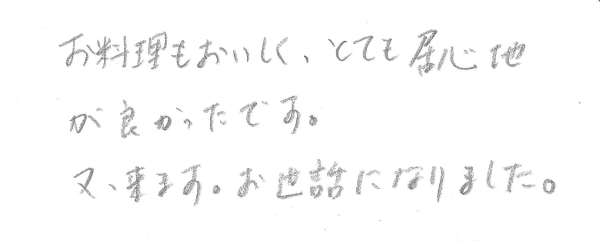 お料理もおいしく、とても居心地
が良かったです。
又、来ます。お世話になりました。